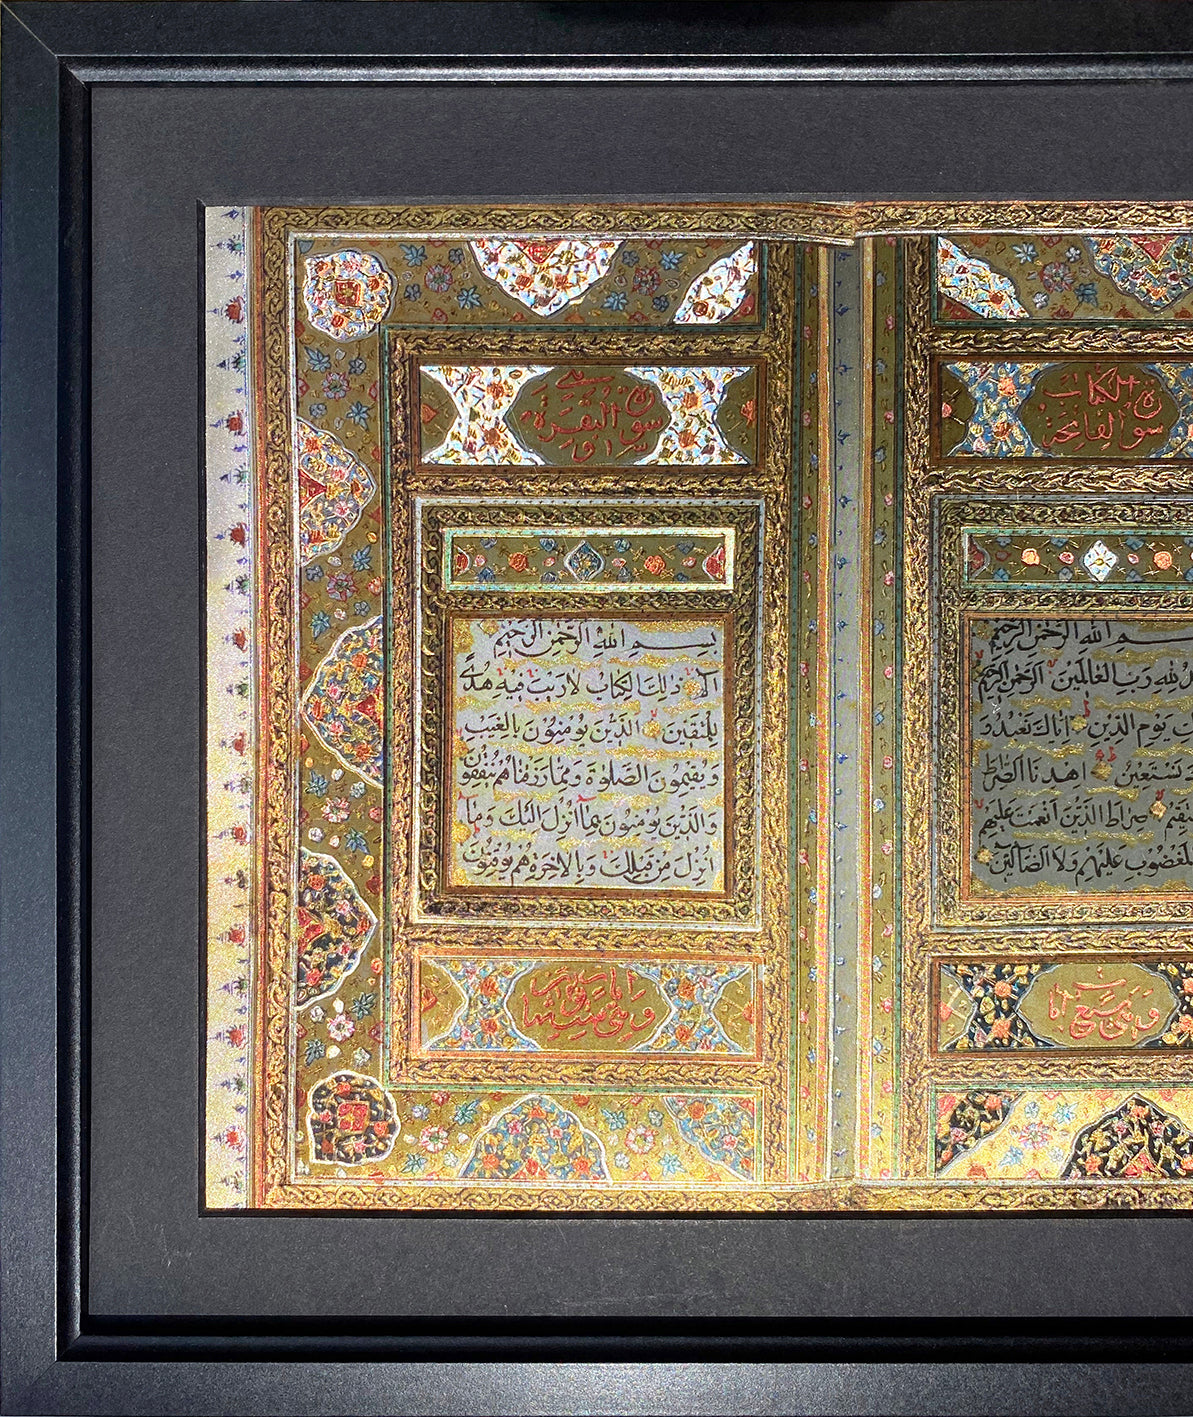 سورة فاتحة الكتاب
بسم الله الرحمن الرحيم
لله رب العالمين الرحمن الرحيم
يوم الدين اياك نعبد و
نستعين اهدنا الصراط
صراط الذين انعمت عليهم
المغضوب عليهم ولا الضالين
وهي سبع ايات
سورة البقرة
بسم الله الرحمن الرحيم
الم ذلك الكتاب لا ريب فيه هدى
للمتقين الذين يؤمنون بالغيب
ويقيمون الصلوة ومما رزقناهم ينفقون
والذين يؤمنون بما انزل اليك وما
انزل من قبلك وبالاخرة هم يوقنون